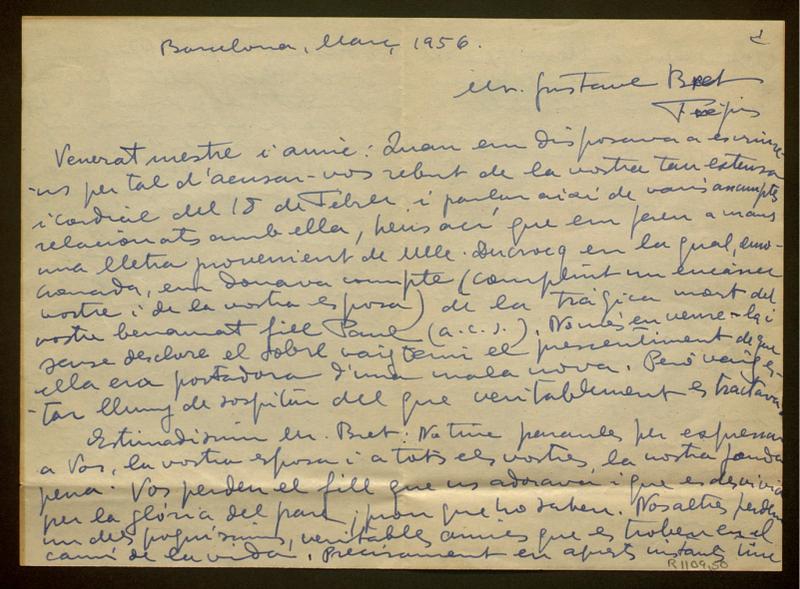 Barcelona, Març, 1956.
Mr. Gustave Bret
Fréjus
Venerat mestre i amic: Quan em disposava a escriure-
-us per tal d'acusar-vos rebut de la vostra tan extensa
i cordial del 18 de Febrer i parlar així de varis assumptes
relacionats amb ella, heus ací que em feren a mans
una lletra provenient de Mlle. Ducrocq en la qual, emo-
cionada, em donava compte (complint un encàrrec
vostre i de la vostra esposa) de la tràgica mort del
vostre benamat fill Paul (a.c.s.). Només en veure-la i
sense desclore el sobre vaig tenir el pressentiment de que
ella era portadora d'una mala nova. Però vaig es-
-tar lluny de sospitar del que veritablement es tractava.
Estimadíssim Mr. Bret: No tinc paraules per expressar
a Vos, la vostra esposa i a tots els vostres, la nostra fonda
pena. Vos perden el fill que us adorava i que es desvivia
per la glòria del pare, prou que ho saben. Nosaltres perdem
un dels poquíssims, veritables amics que es troben en el
camí de la vida. Precisament en aquests instants tinc
R.1109,50